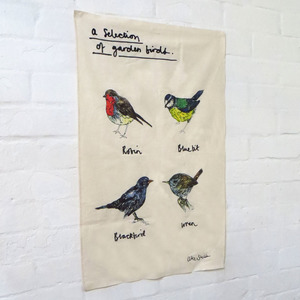 a Selection
of garden birds.
Robin
Bluetit
Blackbird
wren